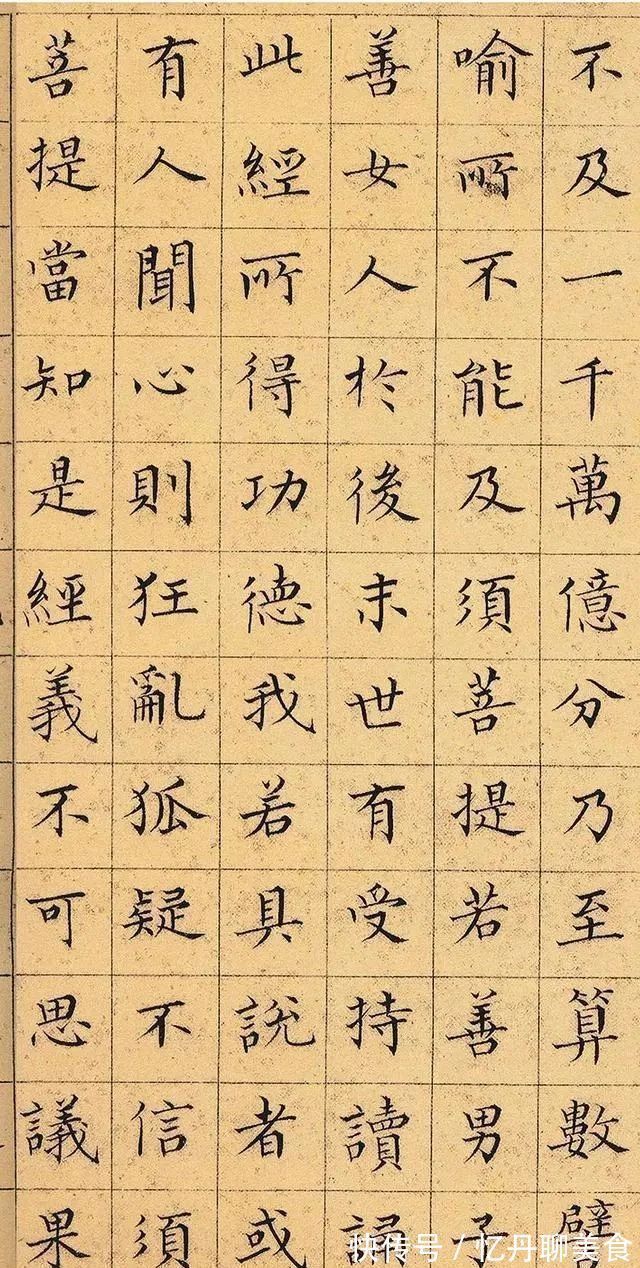 不及一千萬億分乃至算數譬
喻所不能及須菩提若善男子
善女人於後末世有受持讀誦
此經所得功德我若具說者或
有人聞心則狂亂狐疑不信須
菩提當知是經義不可思議果
快传号/忆丹聊美食